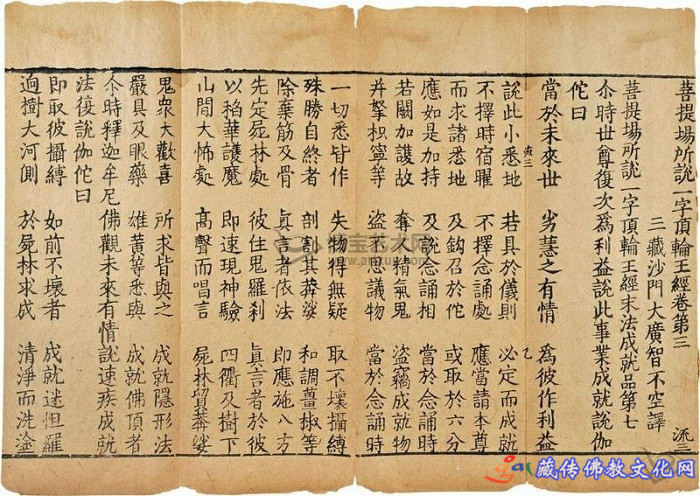 菩提場所說一字頂輪王經卷第三 流三
三藏沙門大廣智不空譯
菩提場所說一字頂輪王經末法成就品第七
尒時世尊復次為利益說此事業成就說伽
佗曰
當於未來世 劣慧之有情 為彼作利益
說此小悉地 若具於儀則 必定而成就
不擇時宿曜 不擇念誦處 應當請本尊
而求諸悉地 及鈎召於佗 或取於六分
應如是加持 及說念誦相 當於念誦時
若闕加護故 奪人精氣鬼 盜竊成就物
并拏枳寧等 盜不思議物 當於念誦時
一切悉皆作 失物得無疑 取不壞攝縛
殊勝自終者 剖割其莽娑 和調薑椒等
除棄筋及骨 真言者依法 即應施八方
先定屍林處 彼住鬼羅剎 真言者於彼
以稻華護魔 即速現神驗 四衢及樹下
山間大怖處 高聲而唱言 屍林貿莽娑
鬼衆大歡喜 所求皆與之 成就隱形法
嚴具及眼藥 雄黃等悉與 成就佛頂者
尒時釋迦牟尼佛觀未來有情說速疾成就
法復說伽佗曰
即取彼攝縛 如前不壞者 成就迷怛羅
迥樹大河側 於屍林求成 清淨而洗塗
藏传佛教文化网